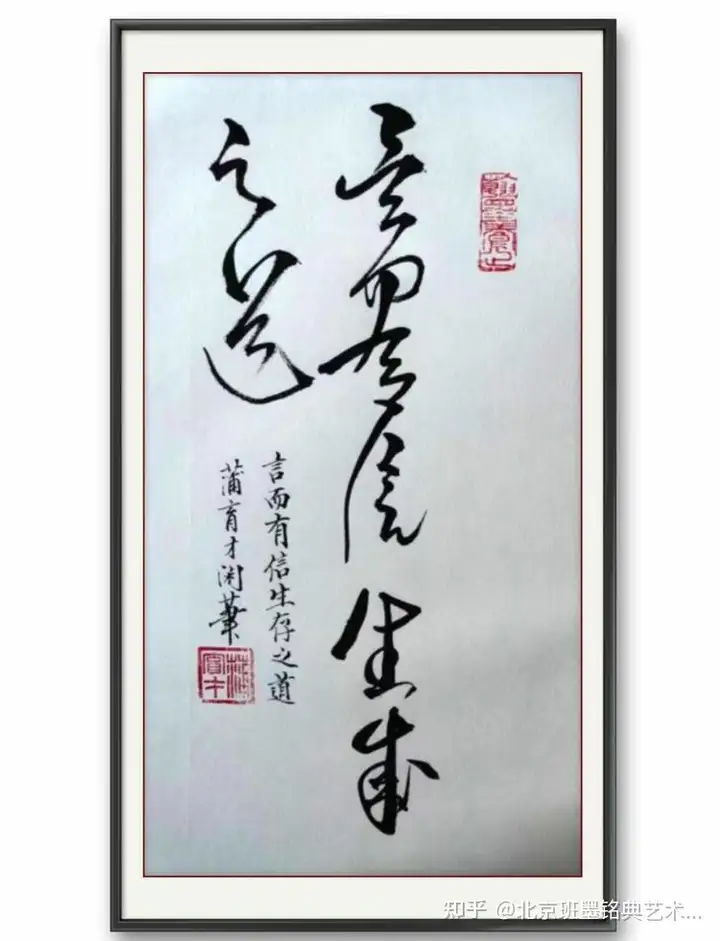 言而有信生存
之道
言而有信生存之道
蒲育才闲筆
蒲育才
知乎 @北京班墨铭典艺术...